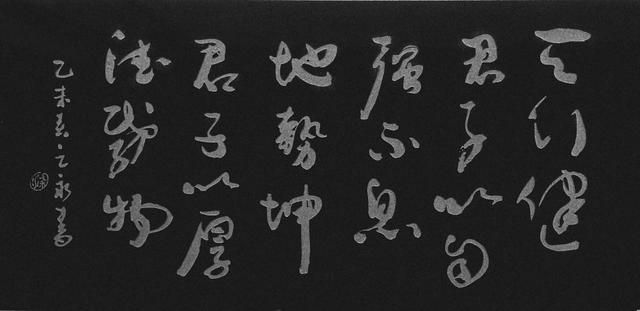 天行健
君子以自
强不息
地勢坤
君子以厚
德載物
乙未春